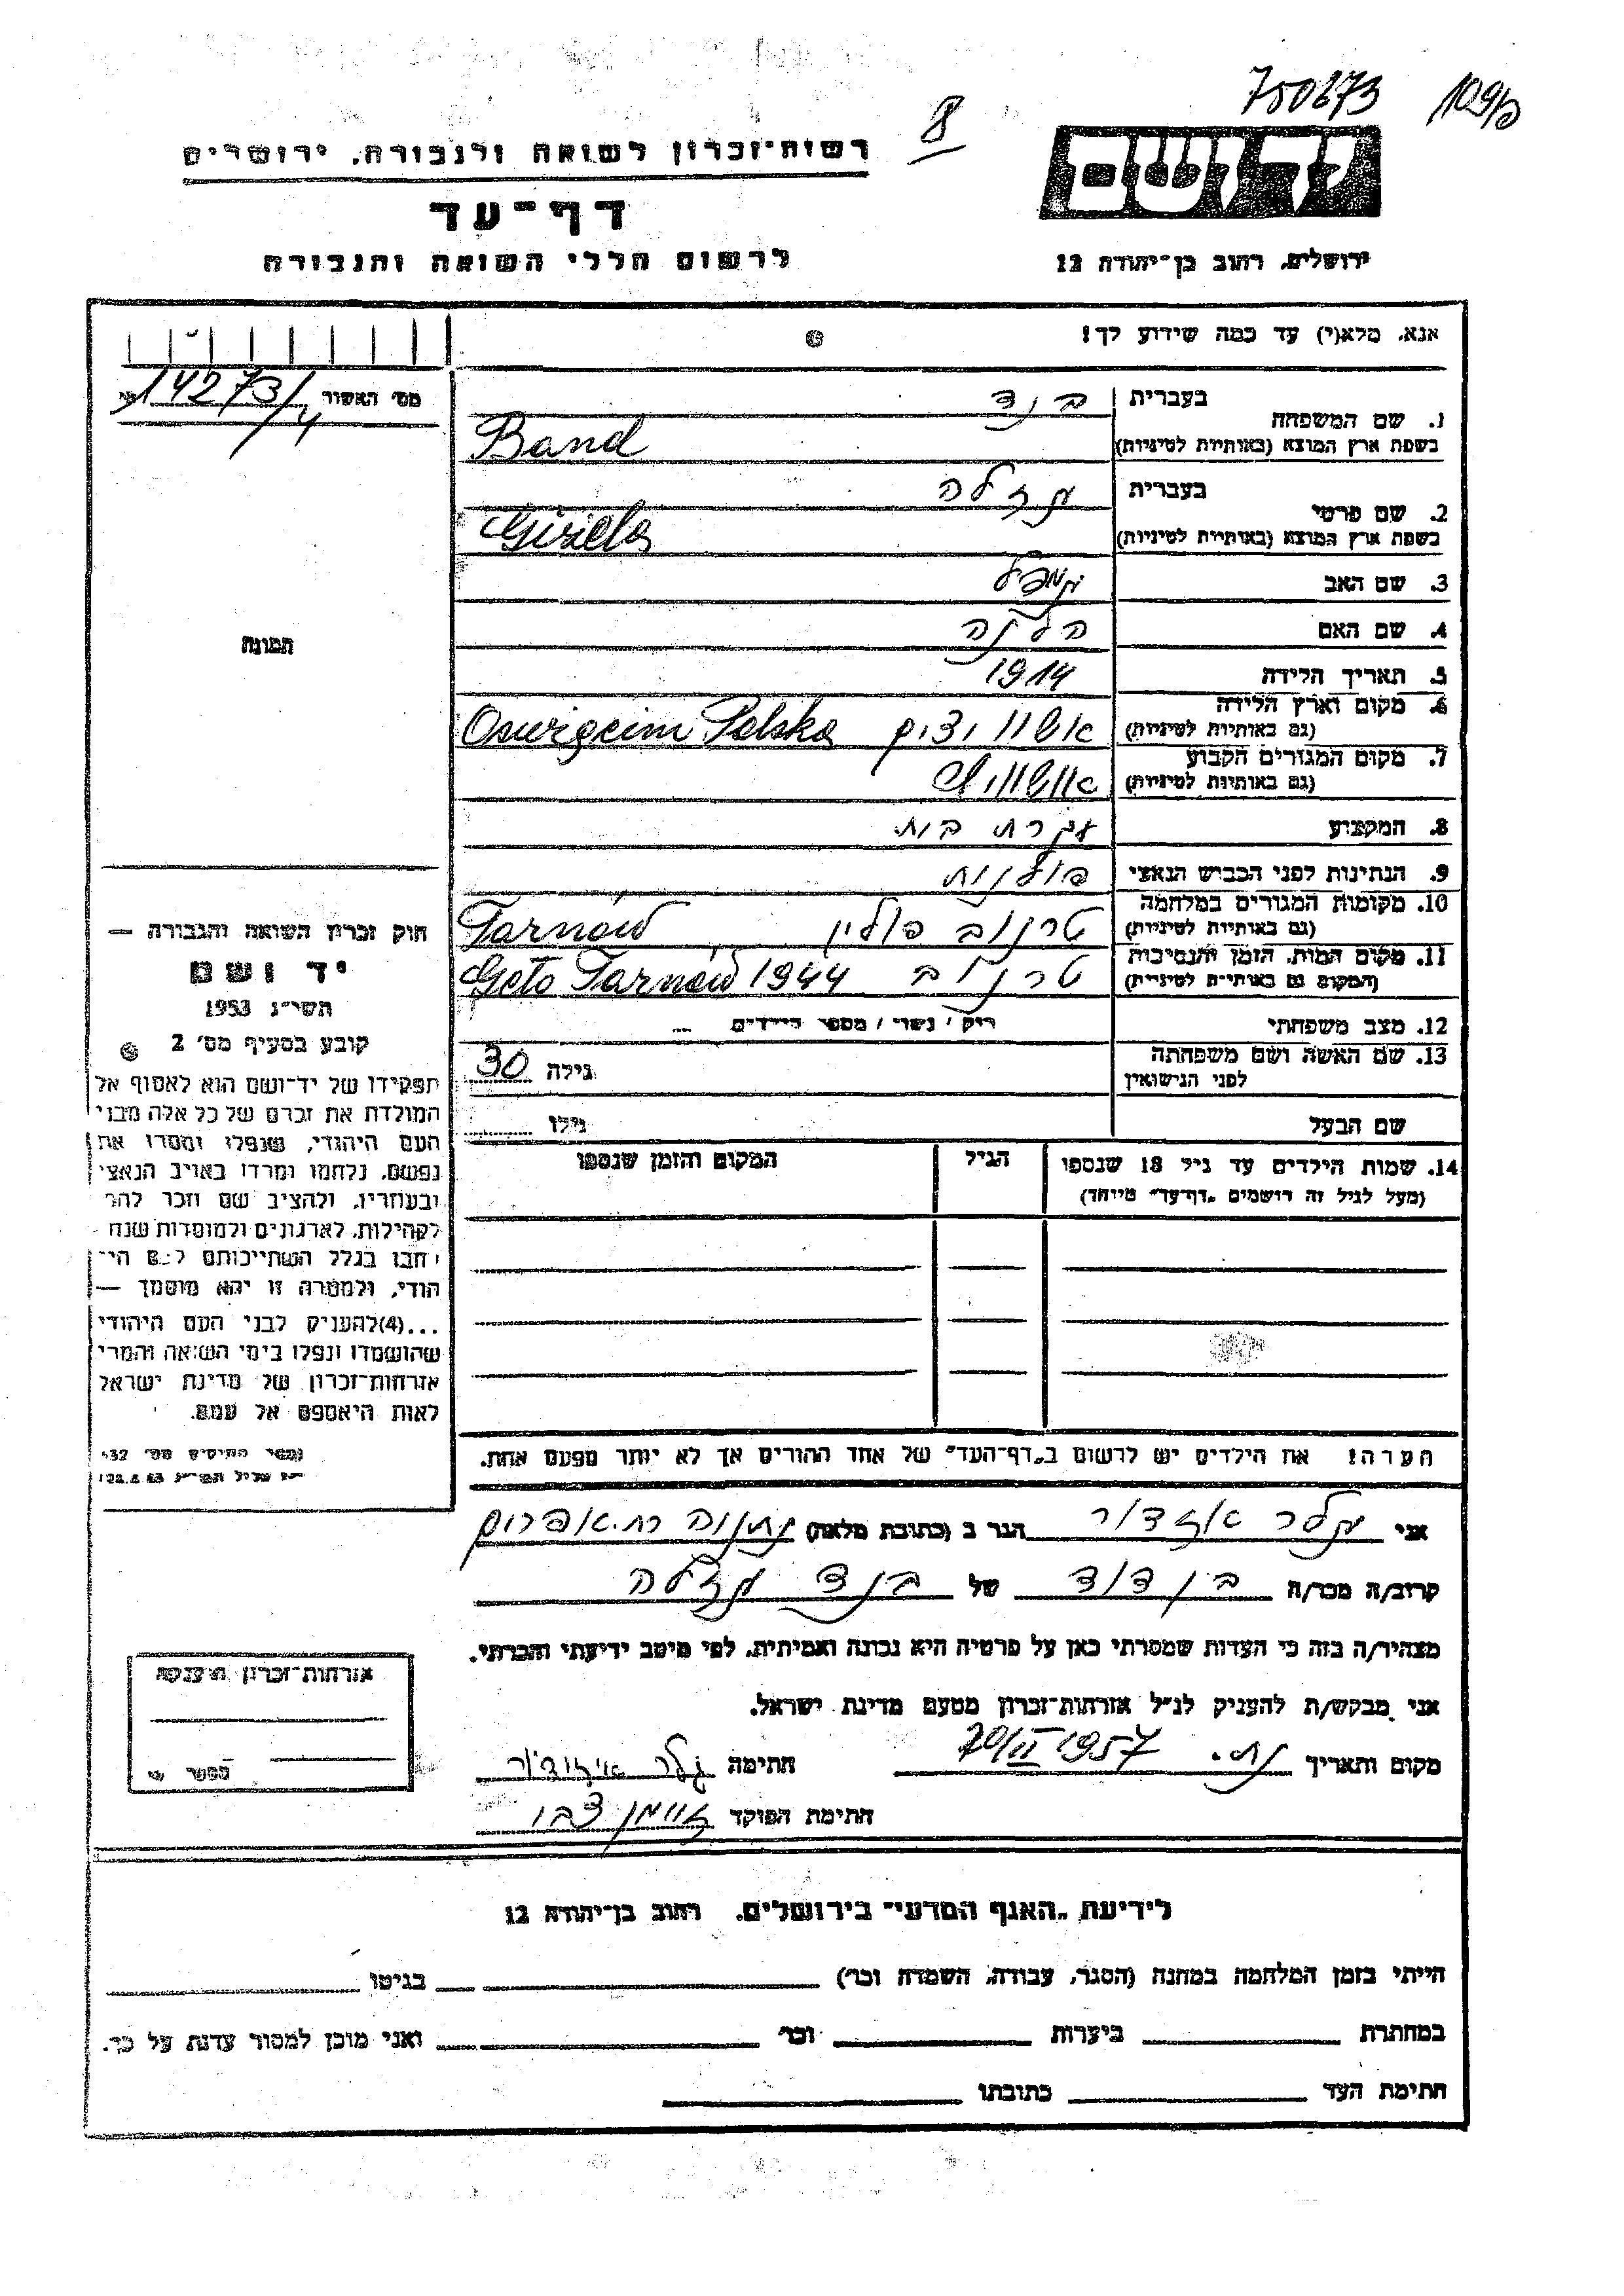 750273 109/מ
8
רשות־זכרון לשואה ולגבורה, ירושלים
יד ושם
דף־עד
לרשום חללי השואה והגבורה
ירושלים, רחוב בן־יהודה 12
אנא, מלא(י) עד כמה שידוע לך!
מס׳ האשור 14273/4
1. שם המשפחה בעברית בנד
בשפת ארץ המוצא (באותיות לטיניות) Band
2. שם פרטי בעברית גיזלה
בשפת ארץ המוצא (באותיות לטיניות) Gizela
3. שם האב
4. שם האם הלנה
5. תאריך הלידה 1914
6. מקום וארץ הלידה (גם באותיות לטיניות) Oswięcim Polska
7. מקום המגורים הקבוע (גם באותיות לטיניות)
8. המקצוע עקרת בית
9. הנתינות לפני הכבוש הנאצי פולנית
10. מקומות המגורים במלחמה (גם באותיות לטיניות) טרנוב פולין Tarnów
11. מקום המות, הזמן והנסיבות (המקום גם באותיות לטיניות) טרנוב Geto Tarnów 1944
12. מצב משפחתי רוק / נשוי / מספר הילדים ...
13. שם האשה ושם משפחתה לפני הנישואין גילה 30
שם הבעל גילו
14. שמות הילדים עד גיל 18 שנספו הגיל המקום והזמן שנספו
(מעל לגיל זה רושמים „דף־עד״ מיוחד)
תמונה
חוק זכרון השואה והגבורה —
יד ושם
תשי״ג 1953
קובע בסעיף מס׳ 2
תפקידו של יד־ושם הוא לאסוף אל
המולדת את זכרם של כל אלה מבני
העם היהודי, שנפלו ומסרו את
נפשם, נלחמו ומרדו באויב הנאצי
ובעוזריו, ולהציב שם וזכר להם
לקהילות, לארגונים ולמוסדות שנח־
רבו בגלל השתייכותם לעם הי־
הודי, ולמטרה זו יהא מוסמך —
...(4) להעניק לבני העם היהודי
שהושמדו ונפלו בימי השואה והמרי
אזרחות־זכרון של מדינת ישראל
לאות היאספם אל עמם.
הערה! את הילדים יש לרשום ב„דף־העד״ של אחד ההורים אך לא יותר מפעם אחת.
אני גלר איזידור הגר ב (כתובת מלאה) נתניה רח. אפרים
קרוב/ה מכר/ה בן דוד של בנד גיזלה
מצהיר/ה בזה כי העדות שמסרתי כאן על פרטיה היא נכונה ואמיתית, לפי מיטב ידיעתי והכרתי.
אני מבקש/ת להעניק לנ״ל אזרחות־זכרון מטעם מדינת ישראל.
מקום ותאריך נת. 20/II 1957 חתימה גלר איזידור
חתימת הפוקד
אזרחות־זכרון הוענקה
מספר
לידיעת „האגף המדעי״ בירושלים, רחוב בן־יהודה 12
הייתי בזמן המלחמה במחנה (הסגר, עבודה, השמדה וכו׳) בגיטו
במחתרת ביערות וכו׳ ואני מוכן למסור עדות על כך.
חתימת העד כתובתו